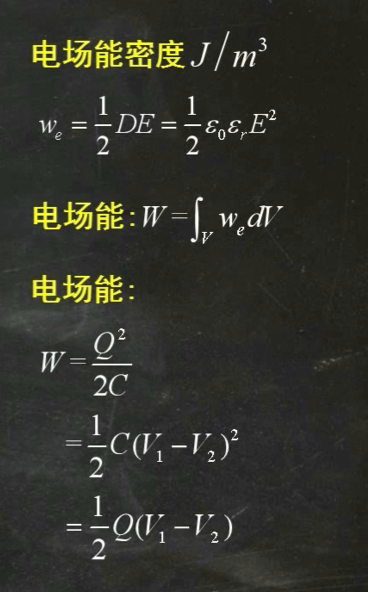 电场能密度 J/m³
wₑ = 1/2 DE = 1/2 ε₀εᵣE²
电场能: W = ∫_V wₑdV
电场能:
W = Q²/2C
= 1/2 C(V₁−V₂)²
= 1/2 Q(V₁−V₂)